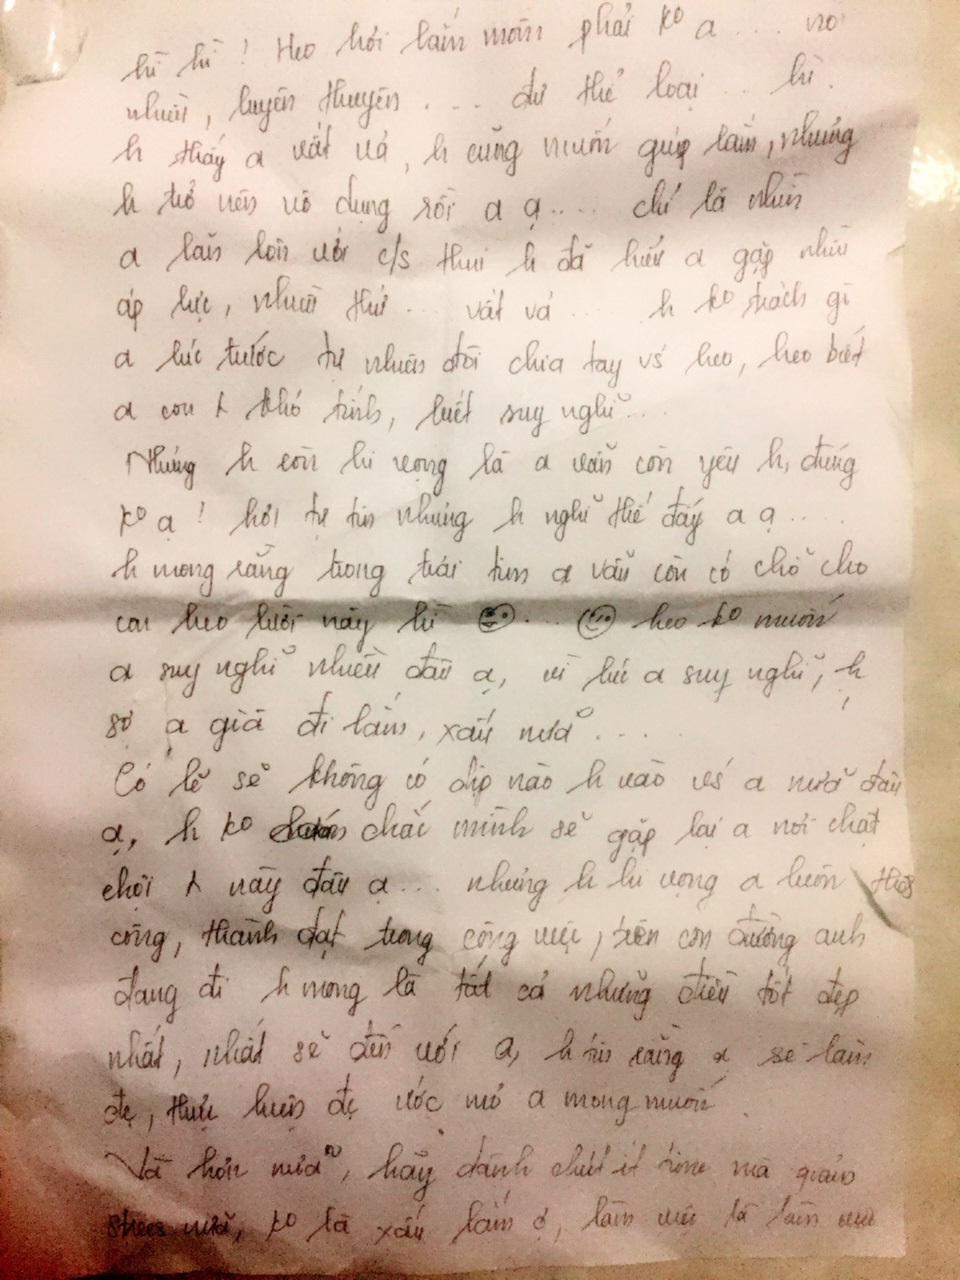 hì hì! Heo hơi lắm mồm phải ko a .... nói
nhiều, luyên thuyên .... đủ thể loại .. hì.
h thấy a vất vả, h cũng muốn giúp lắm, nhưng
h trở nên vô dụng rồi a ạ .... chỉ là nhìn
a lăn lộn với c/s thui h đã hiểu a gặp nhiều
áp lực, nhiều thứ ... vất vả .... h ko trách gì
a lúc trước tự nhiên đòi chia tay vs heo, heo biết
a con t khó tính, suy nghĩ ...
Nhưng h còn hi vọng là a vẫn còn yêu h, đúng
ko ạ! hơi tự tin nhưng h nghĩ thế đấy a ạ ...
h mong rằng trong trái tim a vẫn còn có chỗ cho
con heo lười này hì ... heo ko muốn
a suy nghĩ nhiều đâu ạ, vì lúc a suy nghĩ, h
sợ a già đi lắm, xấu nữa ....
Có lẽ sẽ không có dịp nào h vào vs a nữa đâu
ạ, h ko chắc mình sẽ gặp lại a nơi chật
chội t này đâu ạ ... nhưng h hi vọng a luôn
công, thành đạt trong công việc, trên con đường anh
đang đi h mong là tất cả những điều tốt đẹp
nhất, nhất sẽ đến với a, h tin rằng a sẽ làm
đc, thực hiện đc ước mơ a mong muốn.
Và hơn nữa, hãy dành chút ít time mà giảm
stress nữa, ko là xấu lắm ớ, làm việc là làm